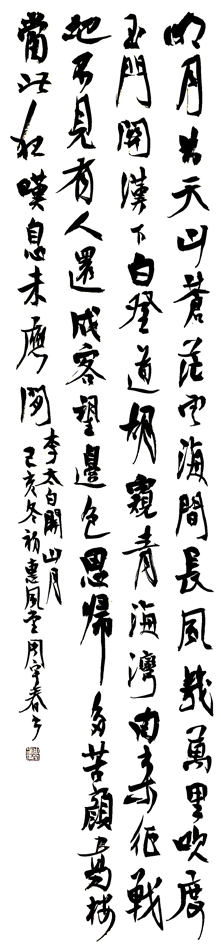 明月出天山蒼茫雲海間長風幾萬里吹度
玉門關漢下白登道胡窺青海灣由來征戰
地不見有人還戍客望邊色思歸多苦顏高樓
當此夜嘆息未應閑
李太白關山月
己亥冬初惠風堂周宇春书